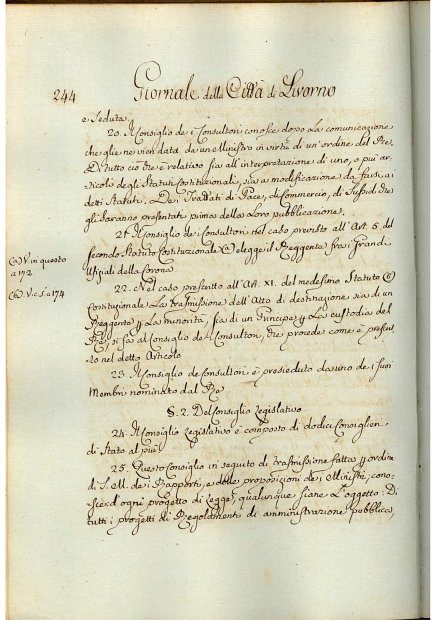 244 Giornale della Città di Livorno
e Seduta
20. Il Consiglio de i Consultori conosce dopo la comunicazione
che gliene vien data da un Ministro in virtù di un'ordine del Re,
Di tutto ciò che è relativo sia all'interpretazione di uno, o più ar-
ticoli degli Statuti Costituzionali, sia a modificazione da farsi ai
detti Statuti. Dei Trattati di Pace, di Commercio, di Sussidi che
gli saranno presentati prima della loro pubblicazione.
21. Il Consiglio de i Consultori nel caso previsto all'Art. 5. del
(a) V. in questo
a 172
secondo Statuto Costituzionale (a) elegge il Reggente fra i Grandi
Ufiziali della Corona
22. Nel caso prescritto all'Art. XI. del medesimo Statuto (b)
(b) V. c. s. a 174
Costituzionale la trasmissione dell'Atto di destinazione sia di un
Reggente p la minorità, sia di un Principe p la custodia del
Re, si fa al Consiglio de i Consultori, che procede come è prescrit-
to nel detto Articolo
23. Il Consiglio de Consultori è presieduto da uno de i suoi
Membri nominato dal Re
S. 2. Del Consiglio Legislativo
24. Il Consiglio Legislativo è composto di dodici Consiglieri
di Stato al più
25. Questo Consiglio in seguito di trasmissione fatta p ordine
di S. M. de i Rapporti, e delle proposizioni de i Ministri, cono-
sce d'ogni progetto di Legge, qualunque siane l'oggetto: Di
tutti i progetti di Regolamenti di amministrazione pubblica,